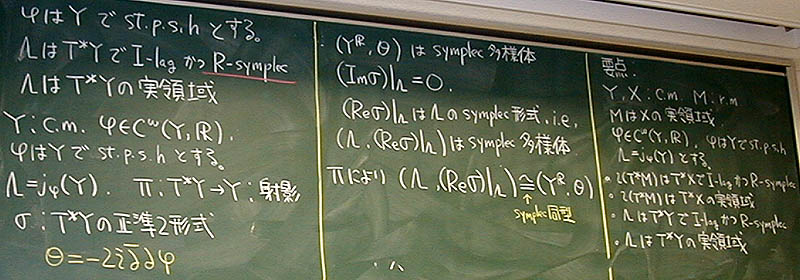 φはYでst.p.s.hとする。
ΛはT*YでI-lagかつR-symplec
ΛはT*Yの実領域
Y:c.m. φ∈C^ω(Y,R),
φはYでst.p.s.hとする。
Λ=jφ(Y). π:T*Y→Y:射影
σ:T*Yの正準2形式
θ=-2i∂̄∂φ
(Y^R,θ)はsymplec多様体
(Imσ)|Λ=0.
(Reσ)|ΛはΛのsymplec形式,i.e,
(Λ,(Reσ)|Λ)はsymplec多様体
πにより (Λ,(Reσ)|Λ)≅(Y^R,θ)
↑
symplec同型
∴
要点:
Y,X:c.m. M:r.m
MはXの実領域
φ∈C^ω(Y,R), φはYでst.p.s.h
Λ=jφ(Y)とする。
• ι(T*M)はT*XでI-lagかつR-symplec
• ι(T*M)はT*Xの実領域
• ΛはT*YでI-lagかつR-symplec
• ΛはT*Yの実領域